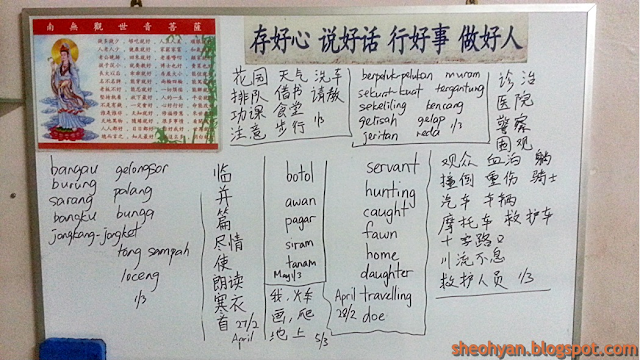 南無觀世音菩薩
存好心 说好话 行好事 做好人
花园 天气 洗车
排队 借书 请教
功课 食堂
注意 步行 1/3
berpeluk-pelukan muram
sekuat-kuat tergantung
sekeliling kencang
gelisah gelap
jeritan reda 1/3
诊治
医院
警察
围观
bangau gelongsor
burung palang
sarang bunga
bangku
jongkang-jongket
tong sampah
loceng
1/3
临
并
篇
尽情
使
朗读
寒衣
首 27/2
April
botol
awan
pagar
siram
tanam
May 1/3
我，火车
画，爬
地上 5/3
servant
hunting
caught
fawn
home
daughter
April travelling
28/2 doe
观众 血泊 躺
撞倒 重伤 骑士
汽车 车辆
摩托车 救护车
十字路口
川流不息
救护人员 1/3
sheohyan.blogspot.com